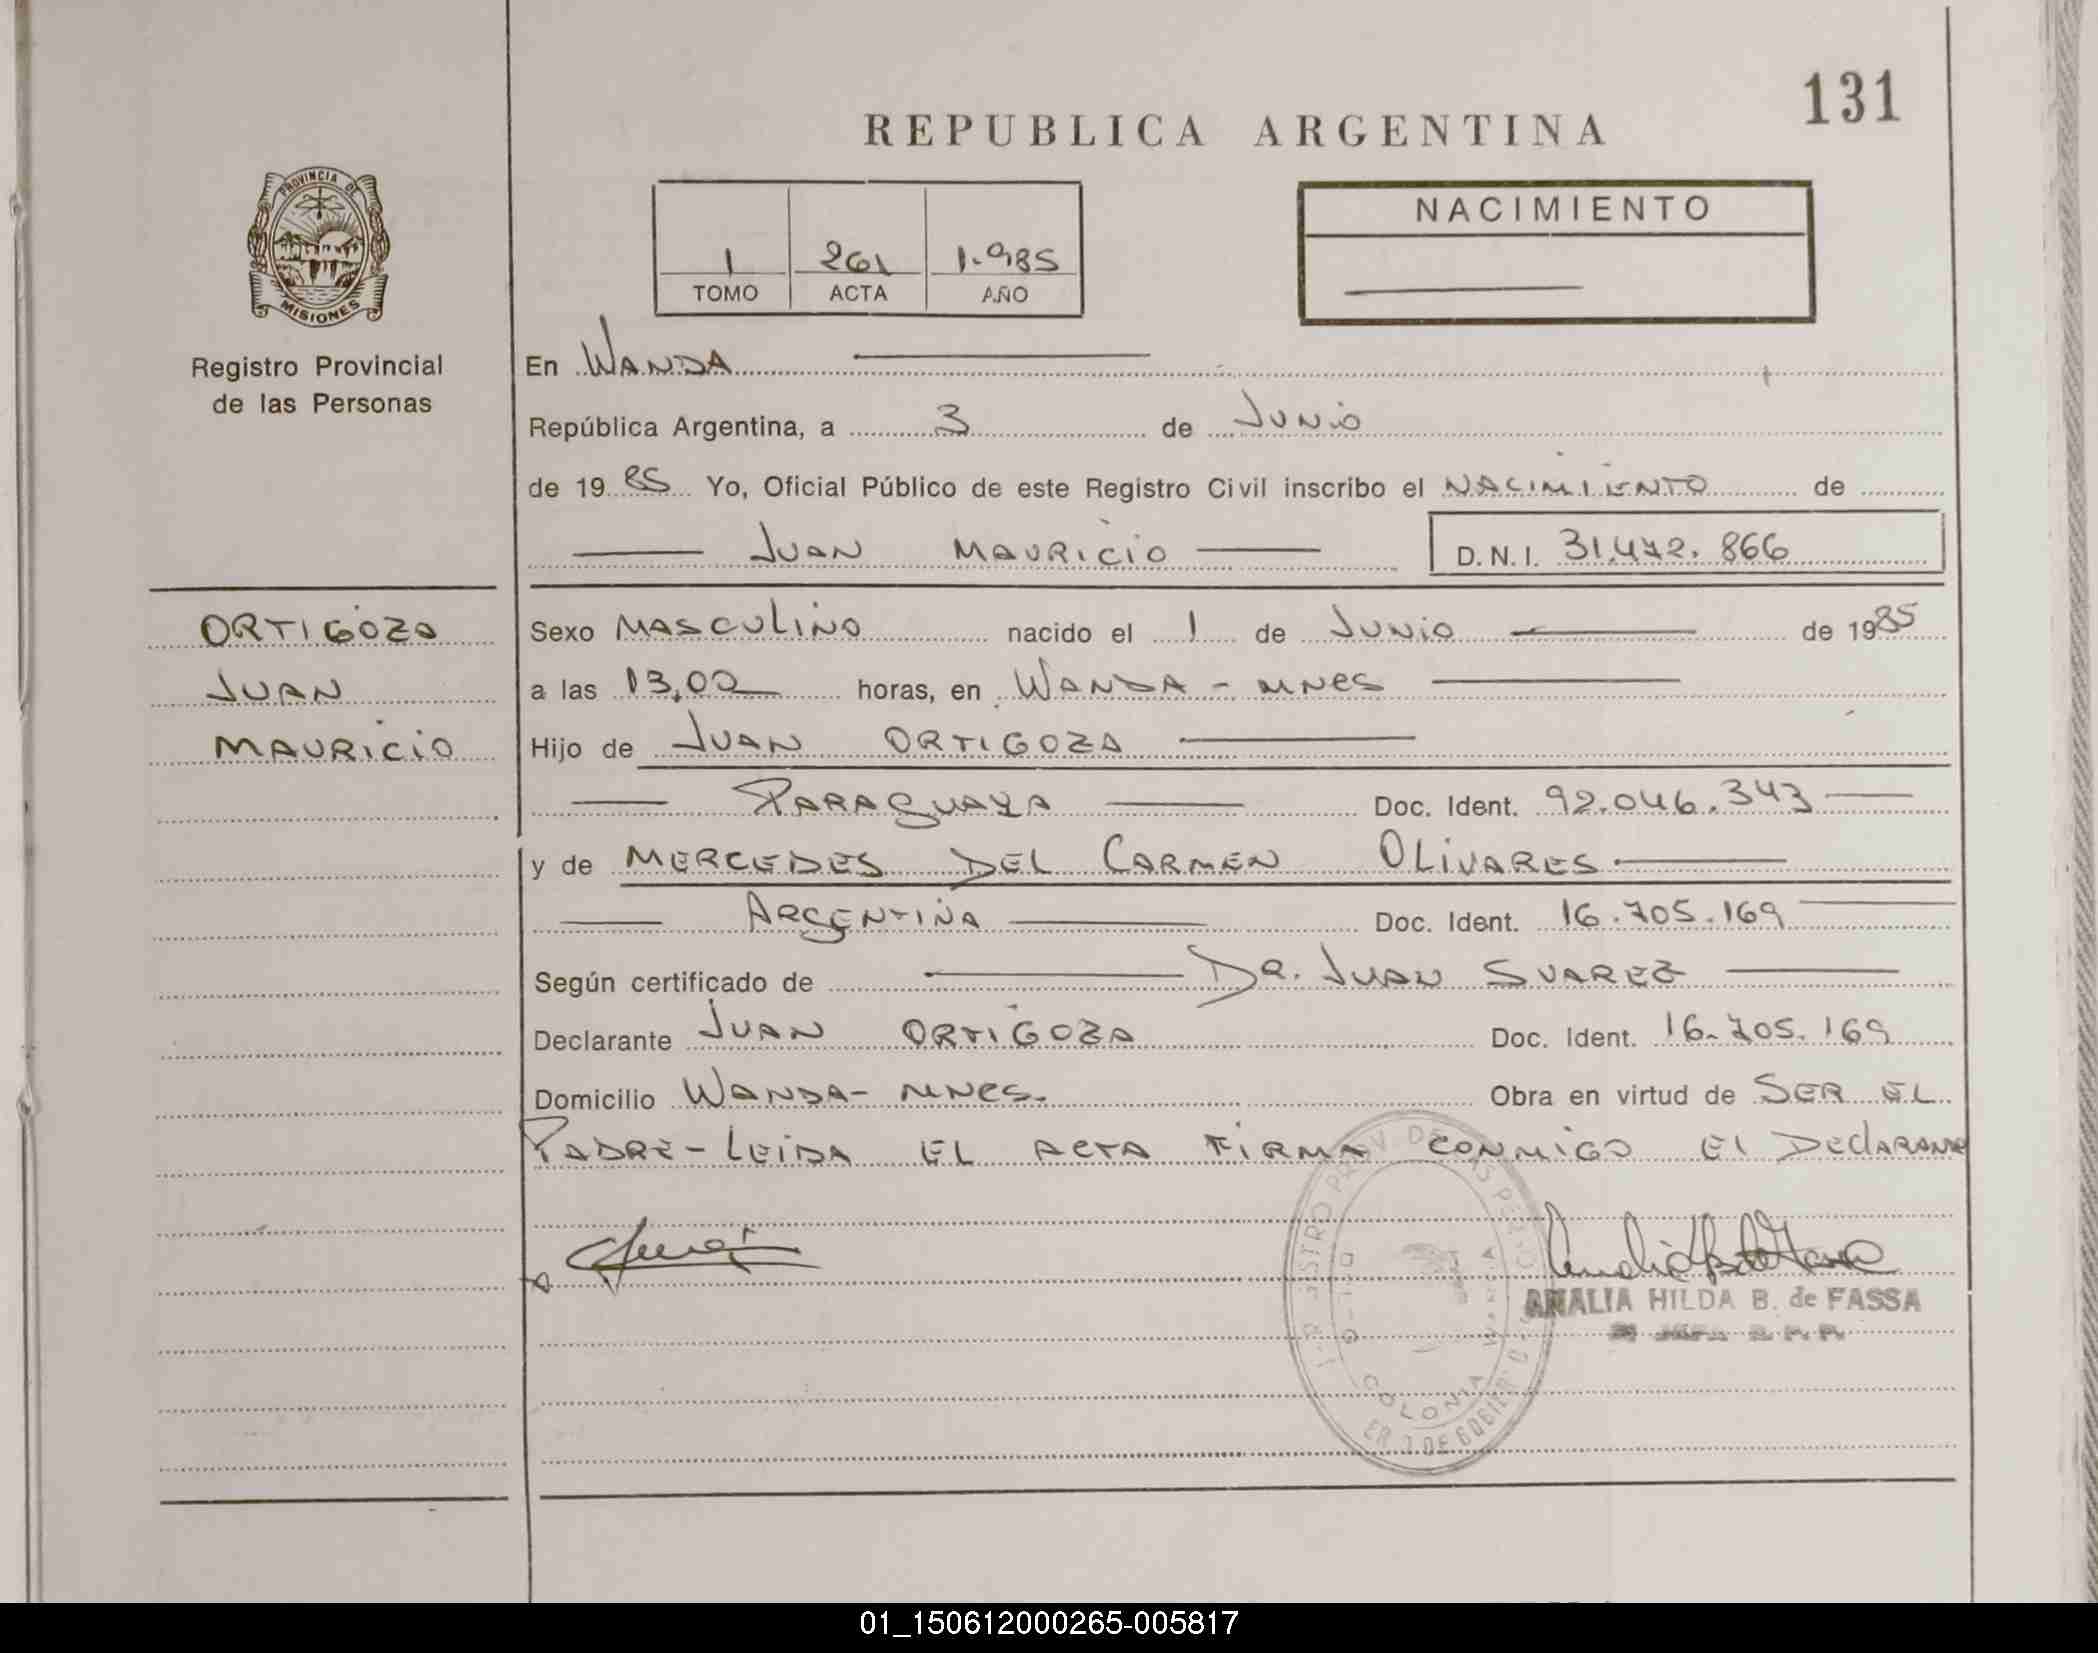 131
REPUBLICA ARGENTINA
PROVINCIA DE
MISIONES
NACIMIENTO
1 261 1.985
TOMO ACTA AÑO
Registro Provincial
de las Personas
En WANDA
República Argentina, a 3 de JUNIO
de 19 85 Yo, Oficial Público de este Registro Civil inscribo el NACIMIENTO de
JUAN MAURICIO D.N.I. 31.472.866
ORTIGOZA
JUAN
MAURICIO
Sexo MASCULINO nacido el 1 de JUNIO de 1985
a las 13,00 horas, en WANDA - MNES
Hijo de JUAN ORTIGOZA
PARAGUAYA Doc. Ident. 92.046.343
y de MERCEDES DEL CARMEN OLIVARES
ARGENTINA Doc. Ident. 16.705.169
Según certificado de DR. JUAN SUAREZ
Declarante JUAN ORTIGOZA Doc. Ident. 16.705.169
Domicilio WANDA - MNES. Obra en virtud de SER EL
PADRE - LEIDA EL ACTA FIRMA CONMIGO El DEClARANTE
COLONIA WANDA
AMALIA HILDA B. de FASSA
01_150612000265-005817